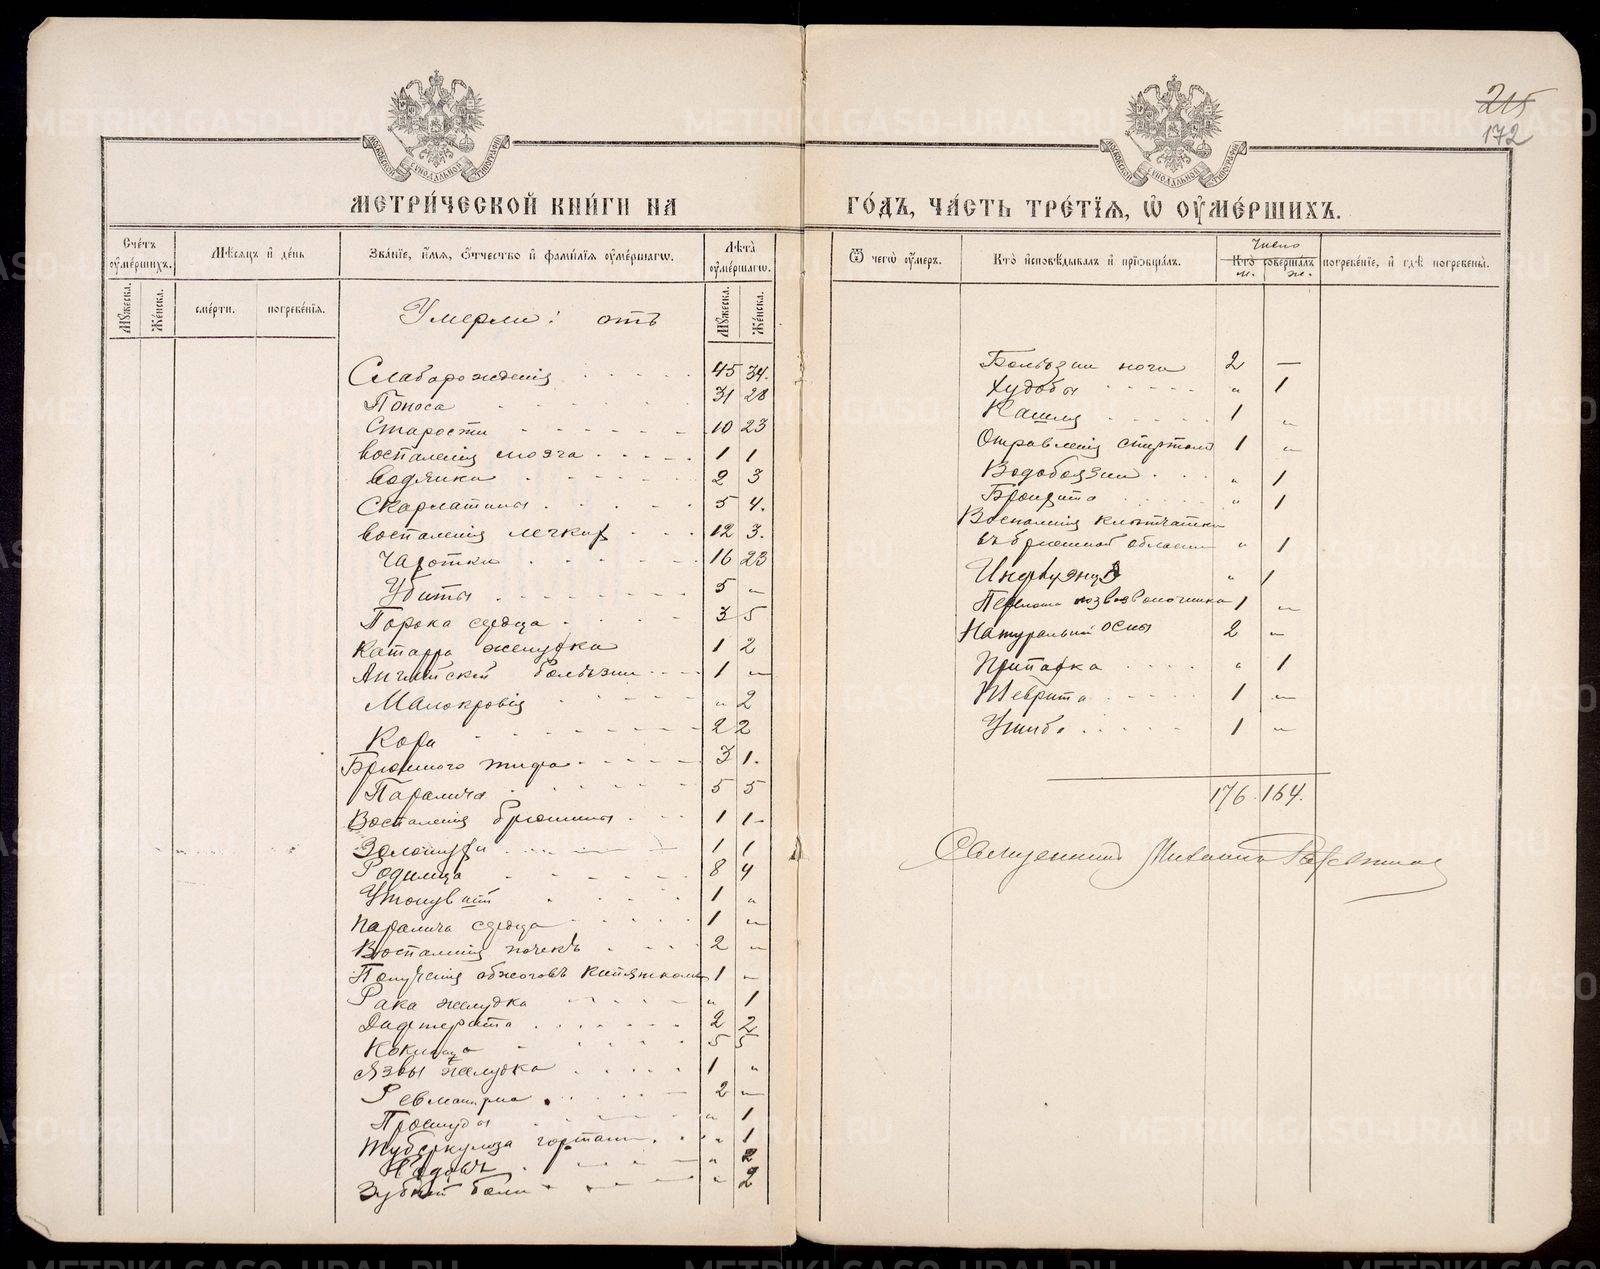 215
172
МЕТРИ́ЧЕСКОЙ КНИ́ГИ НА
ГО́ДЪ, ЧА́СТЬ ТРЕ́ТІѦ, Ѡ ОУМЕ́РШИХЪ.
Сче́тъ оуме́ршихъ.
Мѣ́сѧцъ и де́нь
Зва́нїе, и́мѧ, о́тчество и фами́лїѧ оуме́ршагѡ.
Лѣ́та оуме́ршагѡ.
Мꙋжеска.
Же́нска.
сме́рти.
погребе́нїѧ.
Мꙋжеска.
Же́нска.
Умерли: отъ
Слаборожденія 45 34.
Поноса 31 28
Старости 10 23
воспаленія мозга 1 1
водянки 2 3
Скарлатины 5 4.
воспаленія легких 12 3.
Чахотки 16 23
Убиты 5 „
Порока сердца 3 5
Катарра желудка 1 2
Англійской болѣзни 1 „
Малокровія „ 2
Кори 2 2
Брюшного тифа 3 1.
Паралича 5 5
Воспаленія брюшины 1 1
Золотухи 1 1
Родимца 8 4
Утонув 1 „
Паралича сердца 1 „
Воспаленія почекъ 2 „
Полученія обжоговъ кипяткомъ 1 „
Рака желудка „ 1
Дифтерита 2 2
Коклюша 5 5
Язвы желудка 1 „
Ревматизма 2 „
Простуды „ 1
Туберкулеза гортани „ 1
Родовъ „ 2
Зубной боли „ 2
Ѿ чегѡ̀ оу́меръ.
Кто̀ и҆сповѣ́дывалъ и прїѡбща́лъ.
Число
Кто̀ соверша́лъ погребе́нїе, и гдѣ̀ погребены̀.
м. ж.
Болѣзни ноги 2 —
Худобы „ 1
Кашля 1 „
Отравленія спиртомъ 1 „
Водобоязни „ 1
Бронхита „ 1
Воспаленія клѣтчатки
въ брюшной области „ 1
Инфлуэнца „ 1
Перелома позвоночника 1 „
Натуральной оспы 2 „
Припадка „ 1
Плеврита 1 „
Ушиба 1 „
176. 164.
Священникъ Михаилъ
METRIKI.GASO-URAL.RU